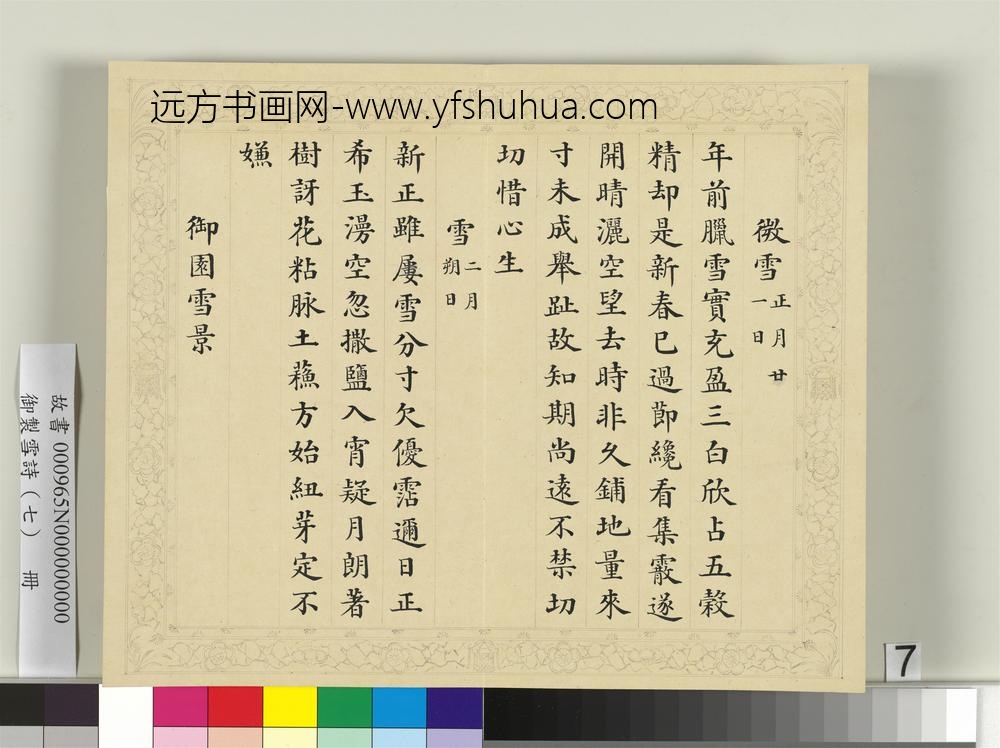 远方书画网-www.yfshuhua.com
微雪 正月廿一日
年前臘雪實充盈三白欣占五穀
精却是新春已過莭纔看集霰遂
開晴灑空望去時非久鋪地量來
寸未成舉趾故知期尚遠不禁切
切惜心生
雪 二月朔日
新正雖屢雪分寸欠優霑邇日正
希玉澇空忽撒鹽入宵疑月朗著
樹訝花粘脉土蘓方始紐芽定不
嫌
御園雪景
故書 000965N000000000
御製雪詩（七） 冊
7